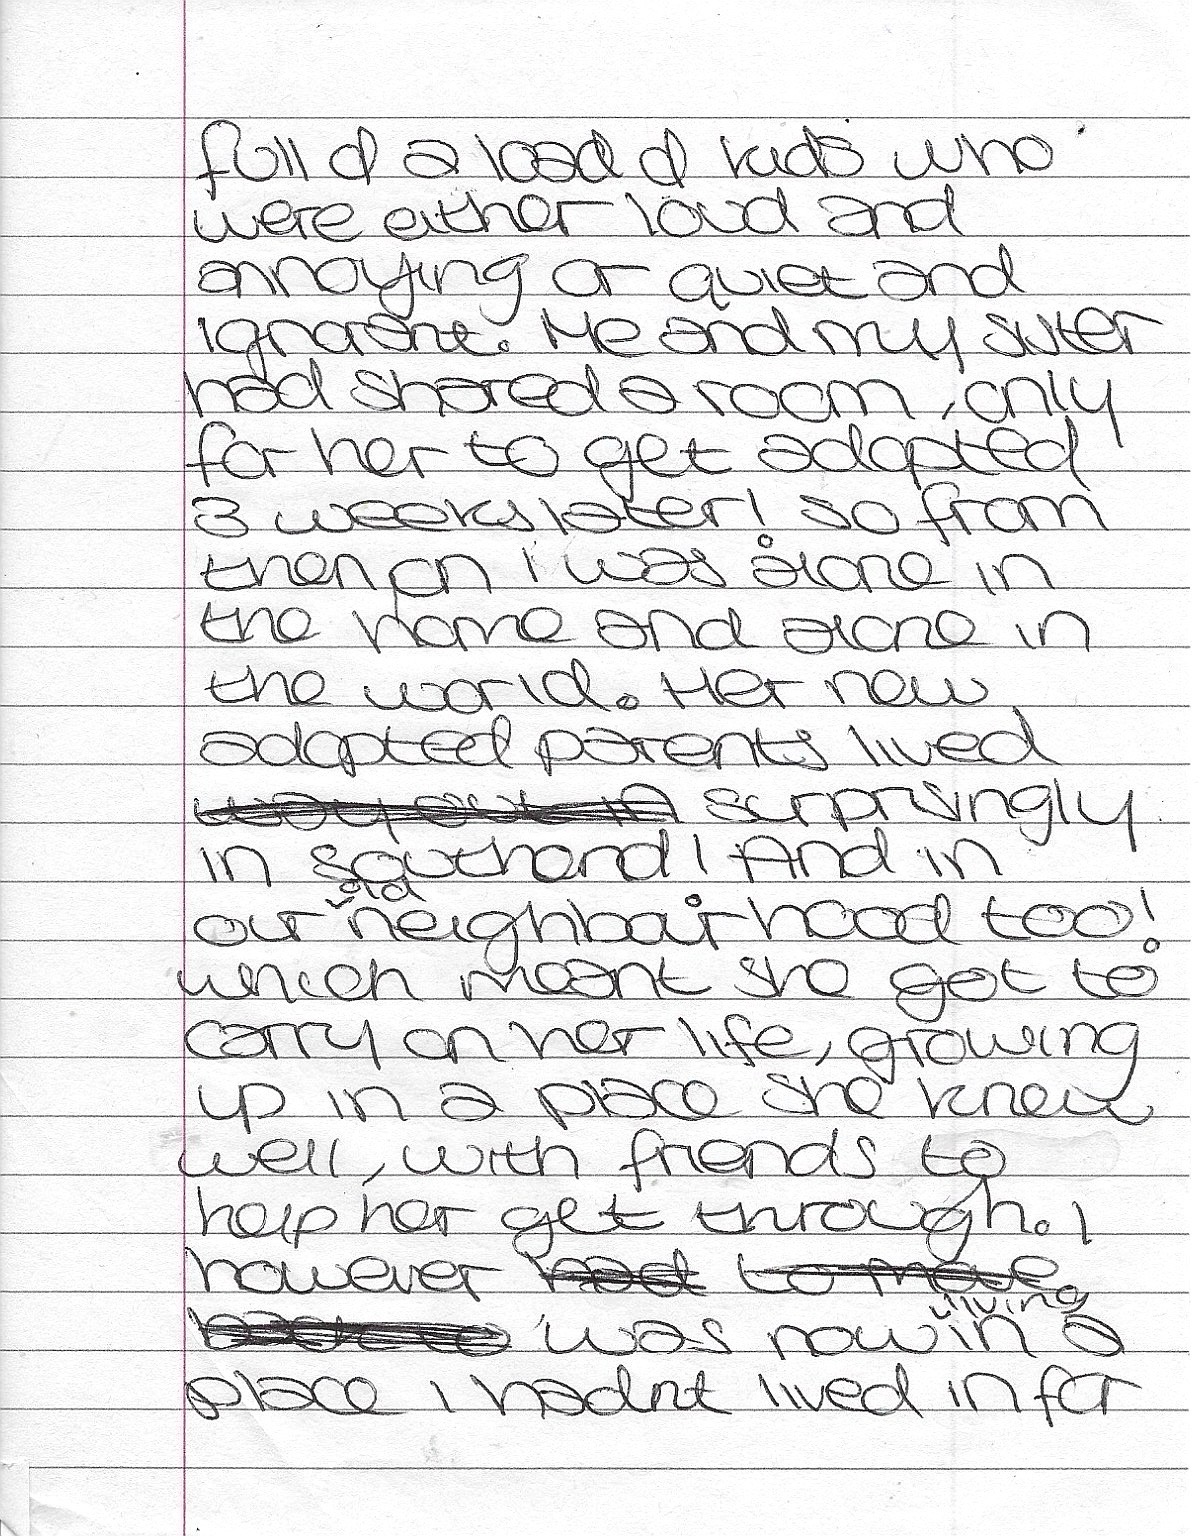 full of a load of kids who
were either loud and
annoying or quiet and
ignorant. Me and my sister
had shared a room, only
for her to get adopted
3 weeks later! so from
then on i was alone in
the home and alone in
the world. Her new
adopted parents lived
way out in surprisingly
in southend! And in
our old neighbourhood too!
which meant she got to
carry on her life, growing
up in a place she knew
well, with friends to
help her get through. I
however had to move
was now living in a
place I hadnt lived in for